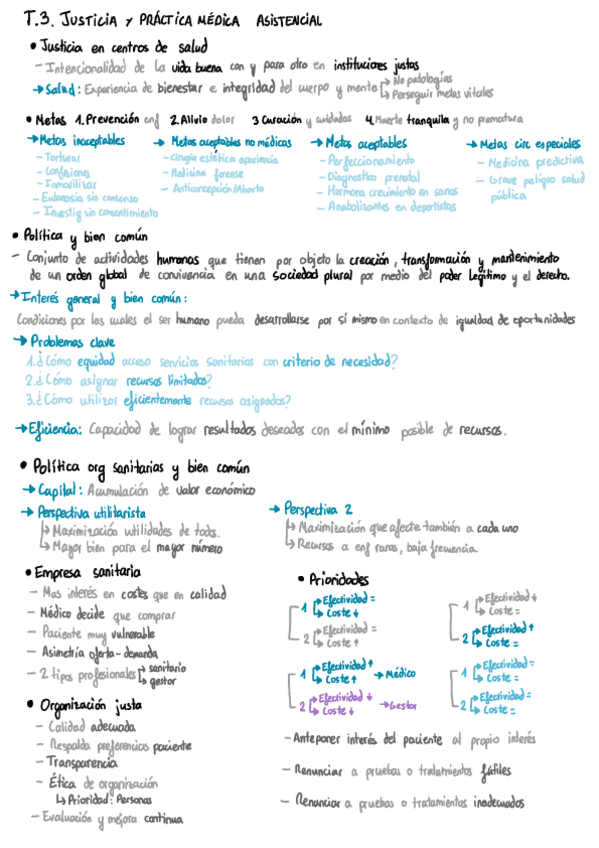 T.3. JUSTICIA Y PRÁCTICA MÉDICA ASISTENCIAL
• Justicia en centros de salud
- Intencionalidad de la vida buena con y para otro en instituciones justas
→ Salud: Experiencia de bienestar e integridad del cuerpo y mente
↳ No patologías
↳ Perseguir metas vitales
• Metas 1. Prevención enf 2. Alivio dolor 3 Curación y cuidados 4. Muerte tranquila y no prematura
→ Metas inaceptables
- Torturas
- Confesiones
- Inmovilizar
- Eutanasia sin consenso
- Investig sin consentimiento
→ Metas aceptables no médicas
- Cirugía estética apariencia
- Medicina forense
- Anticoncepción/Aborto
→ Metas aceptables
- Perfeccionamiento
- Diagnostico prenatal
- Hormona crecimiento en sanos
- Anabolizantes en deportistas
→ Metas circ especiales
- Medicina predictiva
- Grave peligro salud
pública
• Política y bien común
- Conjunto de actividades humanas que tienen por objeto la creación, transformación y mantenimiento
de un orden global de convivencia en una sociedad plural por medio del poder legítimo y el derecho.
→ Interés general y bien común:
Condiciones por las cuales el ser humano pueda desarrollarse por sí mismo en contexto de igualdad de oportunidades
→ Problemas clave
1. ¿Cómo equidad acceso servicios sanitarios con criterio de necesidad?
2. ¿Cómo asignar recursos limitados?
3. ¿Cómo utilizar eficientemente recursos asignados?
→ Eficiencia: Capacidad de lograr resultados deseados con el mínimo posible de recursos.
• Política org sanitarias y bien común
→ Capital: Acumulación de valor económico
→ Perspectiva utilitarista
↳ Maximización utilidades de todos.
↳ Mayor bien para el mayor número
→ Perspectiva 2
↳ Maximización que afecte también a cada uno
↳ Recursos a enf raras, baja frecuencia
• Empresa sanitaria
- Mas interés en costes que en calidad
- Médico decide que comprar
- Paciente muy vulnerable
- Asimetría oferta-demanda
- 2 tipos profesionales
↳ sanitario
↳ gestor
• Organización justa
- Calidad adecuada
- Respalda preferencias paciente
- Transparencia
- Ética de organización
↳ Prioridad: Personas
- Evaluación y mejora continua
• Prioridades
1 Efectividad =
Coste ↓
2 Efectividad =
Coste ↑
1 Efectividad ↓
Coste =
2 Efectividad ↑
Coste =
1 Efectividad ↑
Coste ↑ → Médico
2 Efectividad ↓
Coste ↓ → Gestor
1 Efectividad =
Coste =
2 Efectividad =
Coste =
- Anteponer interés del paciente al propio interés
- Renunciar a pruebas o tratamientos fútiles
- Renunciar a pruebas o tratamientos inadecuados